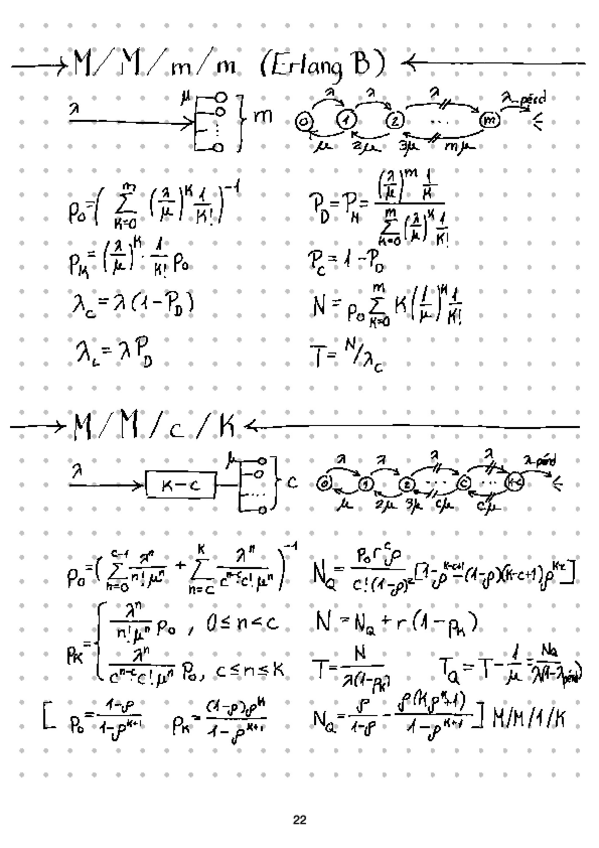 M/M/m/m (Erlang B)
λ μ m
λ λ λ λ pérd
0 1 2 ... m
μ 2μ 3μ mμ
p₀ = (∑_{k=0}^{m} (λ/μ)^k 1/k!)^{-1}
P_D = P_H = ((λ/μ)^m 1/k!) / (∑_{k=0}^{m} (λ/μ)^k 1/k!)
p_k = (λ/μ)^k · 1/k! p₀
P_C = 1 - P_D
λ_C = λ(1-P_D)
N = p₀ ∑_{k=0}^{m} k(1/μ)^k 1/k!
λ_L = λ P_D
T = N/λ_C
M/M/c/K
λ K-c μ c
λ λ λ λ λ pérd
0 1 2 ... c ...
μ 2μ 3μ cμ cμ
p₀ = (∑_{n=0}^{c-1} λ^n/(n! μ^n) + ∑_{n=c}^{K} λ^n/(c^{n-c} c! μ^n))^{-1}
N_Q = (p₀ r^c ρ)/(c!(1-ρ)²) [1-ρ^{K-c+1}-(1-ρ)(K-c+1)ρ^{K-c}]
p_K = { λ^n/(n! μ^n) p₀, 0≤n<c
λ^n/(c^{n-c} c! μ^n) p₀, c≤n≤K
N = N_Q + r(1-p_K)
T = N/(λ(1-p_K))
T_Q = T - 1/μ = N_Q/(λ(1-λ_pérd))
[ p₀ = (1-ρ)/(1-ρ^{K+1}) p_K = ((1-ρ)ρ^K)/(1-ρ^{K+1}) N_Q = ρ/(1-ρ) - (ρ(Kρ^K+1))/(1-ρ^{K+1}) ] M/M/1/K
22